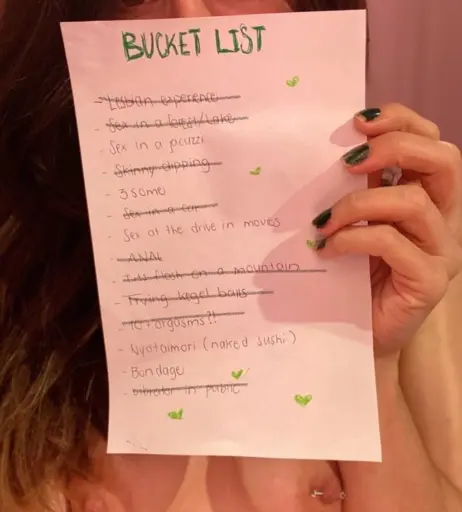 BUCKET LIST
- Lesbian experience
- Sex in a forest/Lake
- Sex in a pcuzzi
- Skinny dipping
- 3 some
- Sex in a car
- Sex at the drive in movies
- ANAL
- Tits flash on a mountain
- Trying kegel balls
- 10+ orgasms?!
- Nyotaimori (naked sushi)
- Bondage
- vibrator in public